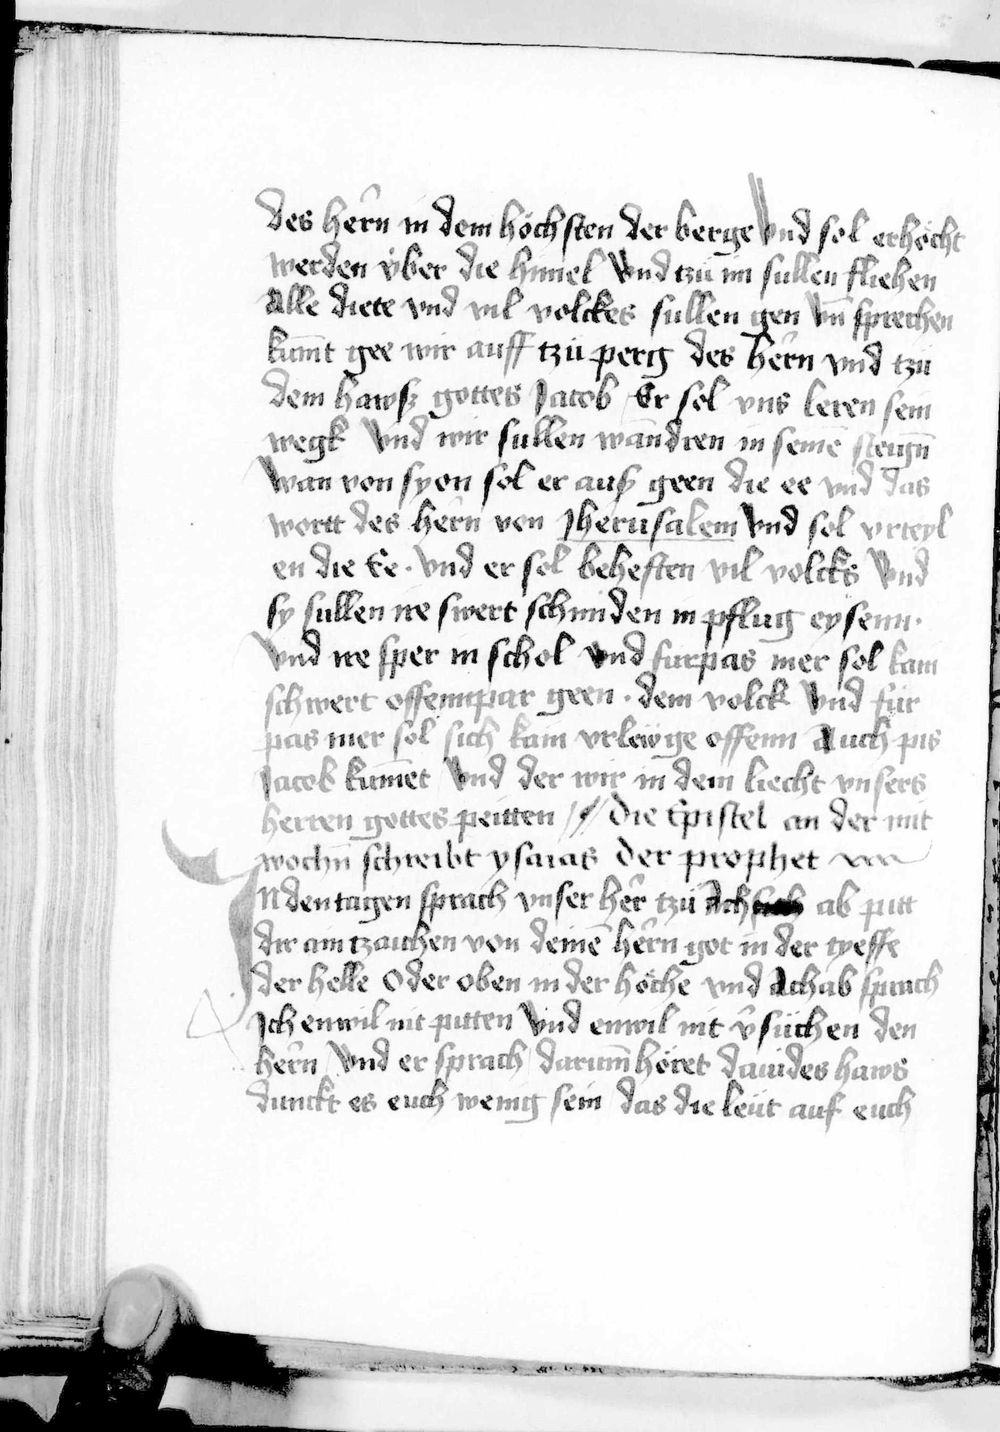 des hern̄ in dem höchsten der berge Vnd sol erhöcht
werden über die himel Vnd tzü im sullen fliehen
Alle diete vnd vil volckes sullen gen Vn̄ sprechen
kum̄t gee wir auff tzü perg des hern̄ vnd tzü
dem hawsz gottes Jacob Er sol vns leren sein
wegk Vnd wir sullen wandren in seinē steign̄
Wan von syon sol er ausz geen die ee vnd das
wortt des hern̄ von Jherusalem Vnd sol vrteyl
en die Ee · Vnd er sol behefften vil volcks Vnd
sy sullen ire swert schmiden in pflug eysenn ·
Vnd ire sper in schol Vnd furpas mer sol kain
schwert offempar geen · dem volck Vnd für
pas mer sol sich kain vrlewge offenn Auch pis
Jacob kumēt Vnd der wir in dem liecht vnsers
herren gottes peitten // Die Epistel an der mit
wochn̄ schreibt ysaias Der prophet
JN den tagen sprach vnser her̄ tzü Ach ab pitt
dir ain tzaichen von deinē hern̄ got in der tyeffe
der helle Oder oben in der höche vnd Achab sprach
Ich enwil nit pitten Vnd enwil nit v̄süchen den
hern̄ Vnd er sprach darum̄ höret dauides haws
dunckt es euch wenig sein das die leüt auf euch